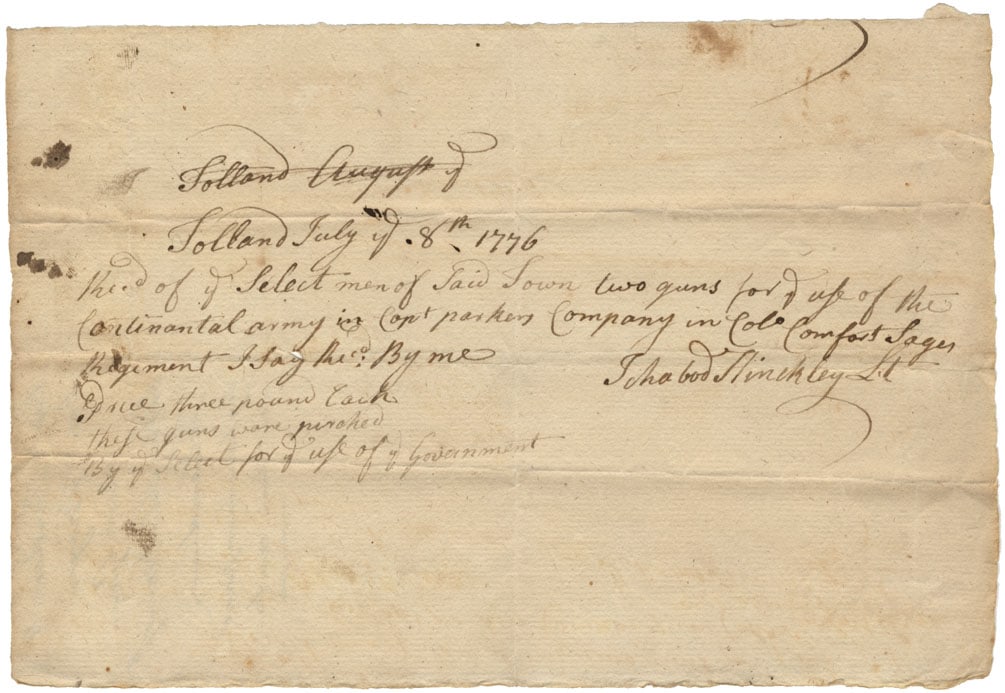 Tolland August ye
Tolland July ye 8th 1776
Recd of ye Select men of Said Town two guns for ye use of the
Continantal army in Capt parkers Company in Colo Comfort Sages
Regiment I Say Recd By me
Ichabod Hinckley Lt
Price three pound Each
these guns ware purched
By ye Select for ye use of ye Government